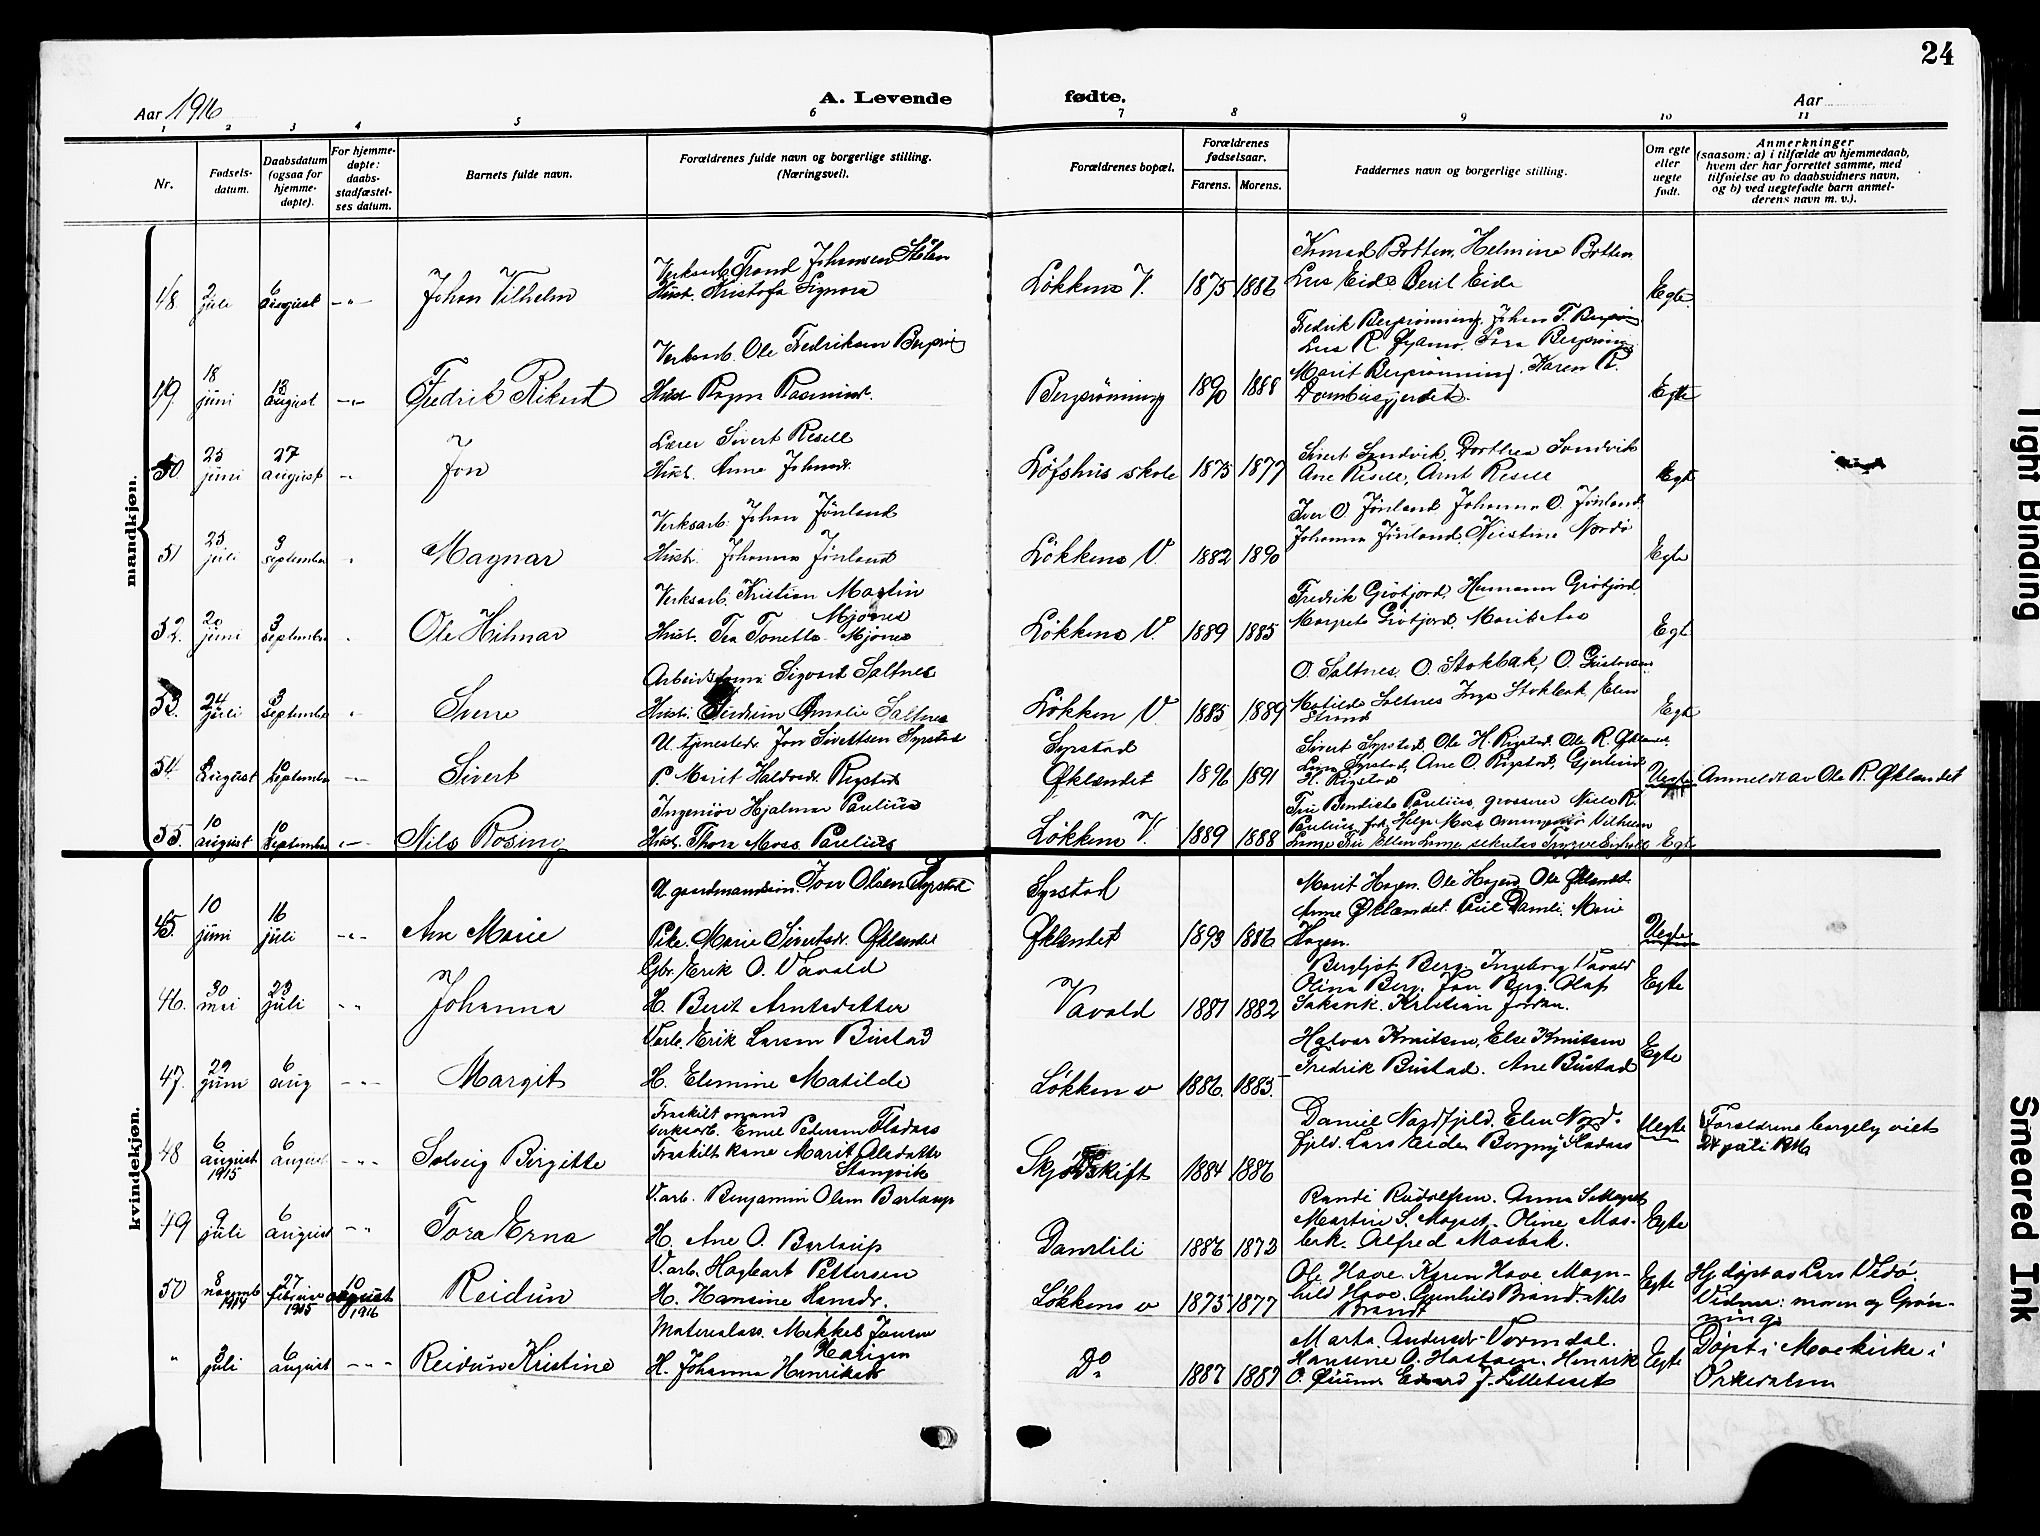 24
Aar 1916
A. Levende fødte.
Aar
1 2 3 4 5 6 7 8 9 10 11
Nr.
Fødsels-
datum.
Daabsdatum
(ogsaa for
hjemme-
døpte).
For hjemme-
døpte:
daabs-
stadfæstel-
ses datum.
Barnets fulde navn.
Forældrenes fulde navn og borgerlige stilling.
(Næringsvei).
Forældrenes bopæl.
Forældrenes
fødselsaar.
Farens. Morens.
Faddernes navn og borgerlige stilling.
Om egte
eller
uegte
født.
Anmerkninger
(saasom: a) i tilfælde av hjemmedaab,
hvem der har forrettet samme, med
tilføielse av to daabsvidners navn,
og b) ved uegtefødte barn anmel-
derens navn m. v.).
mandkjøn.
48 2 juli 6 august Johan Vilhelm
Verksarb. Trond Johansen Stølan
Hust. Kristofa Signora
Løkkens V. 1875 1886
Konrad Botten, Helmine Botten
Lars Eide Beril Eide
Egte
49 18 juni 13 august Fredrik Rikard
Verksarb. Ole Fredriksen
Hust Ragna Rasmusdr.
Bergrønning 1890 1888
Fredrik Bergrønning, Johan F.
Lars R. Øyamo. Tora
Marit Bergrønning, Karen R.
Egte
50 25 juni 27 august Jon
Lærer Sivert Resell
Hust. Anne Johnsdr.
Løfshus skole 1875 1877
Sivert Sundvik, Dorthea Sundvik
Ane Resell, Arnt Resell
Egt
51 25 juli 3 september Magnar
Verksarb. Johan Jønland
Hust. Johanna Jønland
Løkkens V. 1882 1890
Iver O. Jønland Johanna O. Jønland
Johanna Jønland, Kristine Nordø
Egte
52. 20 juni 3 september Ole Hilmar
Verksarb. Kristian Martin
Mjønes
Hust. Tea Tonette Mjønes
Løkkens V. 1889 1885
Fredrik Grøtjord, Hermann Grøtjord
Margrete Grøtjord, Marit Aas
Egt
53. 24 juli 3 september Sverre
Arbeidsform. Sigvart Saltnes
Hust. Gudrun Amalie Saltnes
Løkken V 1885 1889
O. Saltnes, O. Stokbak, O. Gustavsen
Matilde Saltnes Inga Stokbak, Elen
Strand
Egt
54 august 10 september Sivert
U. tjenestedr. Jon Sivertsen Syrstad
P. Marit Haldosdr. Rigstad
Syrstad
Øklandet 1896 1891
Sivert Syrstad, Ole H. Rigstad, Ole R. Øklandet
Syrstad, Ane O. Rigstad,
H. Rigstad
Uegte Anmeldt av Ole R. Øklandet
55. 10 august 10 september Nils Rosing
Ingeniør Hjalmar Paulius
Hust. Thora Moss Paulius
Løkkens V. 1889 1888
Fru Bendiste Paulius, grosserer Niels R.
Paulius, frk. Helga Moss Vilhelm
Lange Fru Ellen Lange sekretær Trygve
Egt
kvindekjøn.
45. 10 juni 16 juli Ane Marie
U. gaardmandsøn. Jon Olsen Syrstad
Pike. Marie Sivertsdr. Øklandet
Syrstad
Øklandet 1893 1886
Marit Hagen. Ole Hagen, Ole Øklandet
Anne Øklandet. Paul Damli. Marie
Hagen.
Uegte
46. 30 mai 23 juli Johanna
Gbr. Erik O. Vavold
H. Berit Arntsdatter
Vavold 1881 1882
Bergljot Berg, Ingeborg Vavold
Olina Berg. Jon Berg. Olaf
Saksvik. Kristian
Egte
47. 29 juni 6 aug Margit
Varb. Erik Larsen Bustad
H. Elemine Matilde
Løkken v 1886. 1885.
Halvor Knutsen, Else Knutsen
Fredrik Bustad. Ane Bustad
Egte
48 6 august 1915 6 august Solveig Birgitte
Fraskilt mand
verksarb. Emil Pedersen Fladaas
Fraskilt kone Marit Alsdatter
Stangvik
Skjødskift 1884 1886
Daniel Nordfjeld, Elen Nord-
fjeld. Lars Eide. Borgny Fladaas
Uegte
Foreldrene borgelig viet
24 juli 1916
49 9 juli 6 august Tora Erna
Varb. Benjamin Olsen Barlaup
H. Ane O. Barlaup
Damlili 1886 1873
Randi Rudolfsen. Anna S. Mogset
Martin S. Mogset. Oline Mos-
bak. Alfred Mosbak.
Egte
50 8 novemb 1914 27 februar 1915 10 august 1916 Reidun
Varb. Hagbart Pettersen
H. Hansine Hansdr.
Løkkens v 1875 1877
Ole Hove. Karen Hove. Magn-
hild Hove. Gunhild Brandt. Nils
Brandt
Egte
Hj døpt av Lars Vedø.
Vidner: moren og Grøn-
ning
" 3 juli 6 august Reidun Kristine
Materialass. Mikkel Jensen
Haugen
H. Johanna Henriksdr
Do 1887 1887
Marta Andersdr. Vormdal.
Hansine O. Hastaen. Henrik
O. Edvard J. Lilleteset
Egte
Døpt i Moe kirke i
Orkedalen
Tight Binding
Smeared Ink